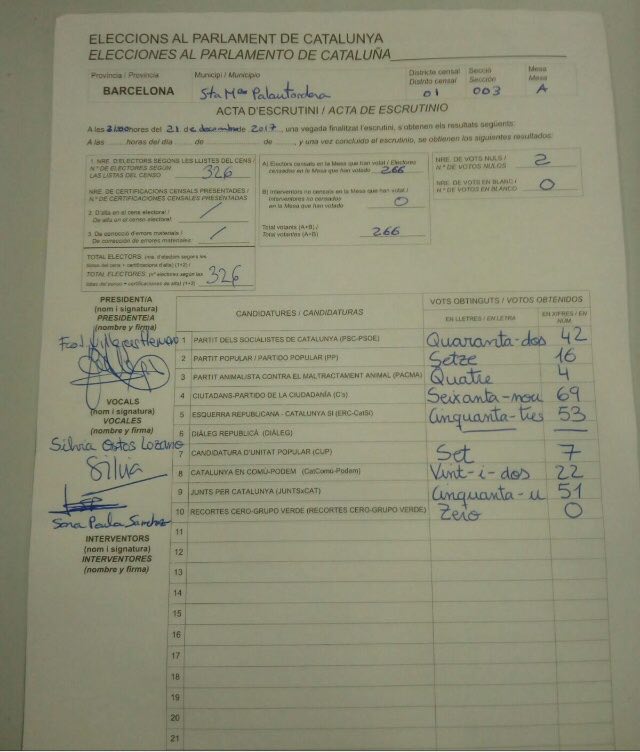 ELECCIONS AL PARLAMENT DE CATALUNYA
ELECCIONES AL PARLAMENTO DE CATALUÑA
Província / Provincia
Municipi / Municipio
Districte censal
Distrito censal
Secció
Sección
Mesa
Mesa
BARCELONA
Sta Mª Palautordera
01
003
A
ACTA D'ESCRUTINI / ACTA DE ESCRUTINIO
A les 21:00 hores del 21 de decembre de 2017, una vegada finalitzat l'escrutini, s'obtenen els resultats següents:
A las horas del día de de , y una vez concluido el escrutinio, se obtienen los siguientes resultados:
1. NRE. D'ELECTORS SEGONS LES LLISTES DEL CENS /
N.º DE ELECTORES SEGÚN
LAS LISTAS DEL CENSO
326
NRE. DE CERTIFICACIONS CENSALS PRESENTADES /
N.º DE CERTIFICACIONES CENSALES PRESENTADAS
2. D'alta en el cens electoral /
De alta en el censo electoral:
/
3. De correcció d'errors materials /
De corrección de errores materiales:
/
TOTAL ELECTORS (nre. d'electors segons les
llistes del cens + certificacions d'alta) (1+2) /
TOTAL ELECTORES (nº electores según las
listas del censo + certificaciones de alta) (1+2)
326
A) Electors censats en la Mesa que han votat / Electores
censados en la Mesa que han votado
266
B) Interventors no censats en la Mesa que han votat /
Interventores no censados
en la Mesa que han votado
0
Total votants (A+B) /
Total votantes (A+B)
266
NRE. DE VOTS NULS /
N.º DE VOTOS NULOS
2
NRE. DE VOTS EN BLANC /
N.º DE VOTOS EN BLANCO
0
PRESIDENT/A
(nom i signatura)
PRESIDENTE/A
(nombre y firma)
VOCALS
(nom i signatura)
VOCALES
(nombre y firma)
Silvia Ostos Lozano
Silvia
Sara Paula Sanchez
INTERVENTORS
(nom i signatura)
INTERVENTORES
(nombre y firma)
CANDIDATURES / CANDIDATURAS
VOTS OBTINGUTS / VOTOS OBTENIDOS
EN LLETRES / EN LETRA
EN XIFRES / EN NÚM.
1 PARTIT DELS SOCIALISTES DE CATALUNYA (PSC-PSOE) Quaranta-dos 42
2 PARTIT POPULAR / PARTIDO POPULAR (PP) Setze 16
3 PARTIT ANIMALISTA CONTRA EL MALTRACTAMENT ANIMAL (PACMA) Quatre 4
4 CIUTADANS-PARTIDO DE LA CIUDADANÍA (C's) Seixanta-nou 69
5 ESQUERRA REPUBLICANA - CATALUNYA SÍ (ERC-CatSí) Cinquanta-tres 53
6 DIÀLEG REPUBLICÀ (DIÀLEG)
7 CANDIDATURA D'UNITAT POPULAR (CUP) Set 7
8 CATALUNYA EN COMÚ-PODEM (CatComú-Podem) Vint-i-dos 22
9 JUNTS PER CATALUNYA (JUNTSxCAT) Cinquanta-u 51
10 RECORTES CERO-GRUPO VERDE (RECORTES CERO-GRUPO VERDE) Zero 0
11
12
13
14
15
16
17
18
19
20
21